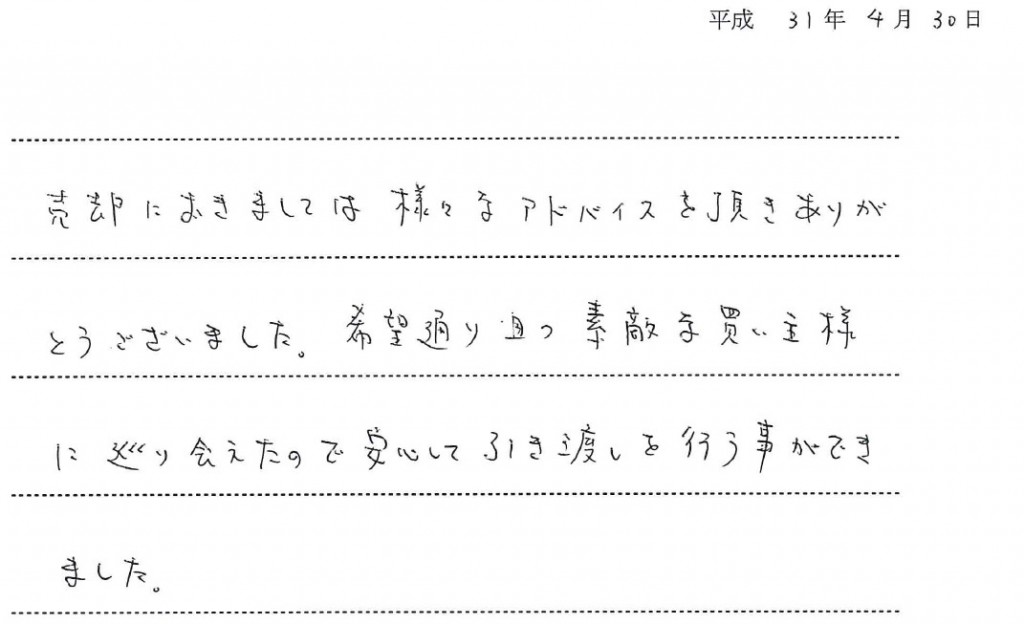 平成 31年 4月 30日
売却におきましては 様々なアドバイスを頂きありが
とうございました。希望通り且つ 素敵な買い主様
に 巡り会えたので安心して引き渡しを行う事ができ
ました。